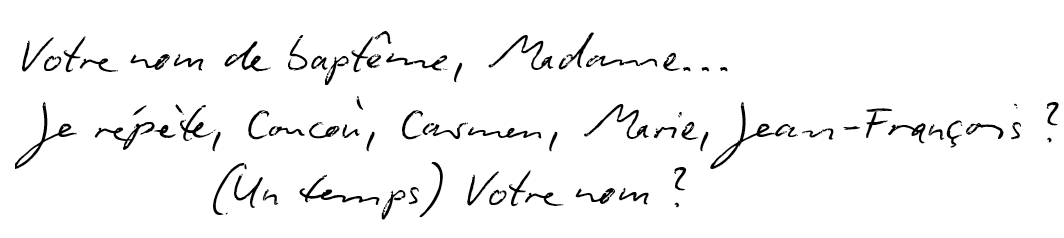 Votre nom de baptême, Madame...
Je répète, Concoù, Carmen, Marie, Jean-François ?
(Un temps) Votre nom ?